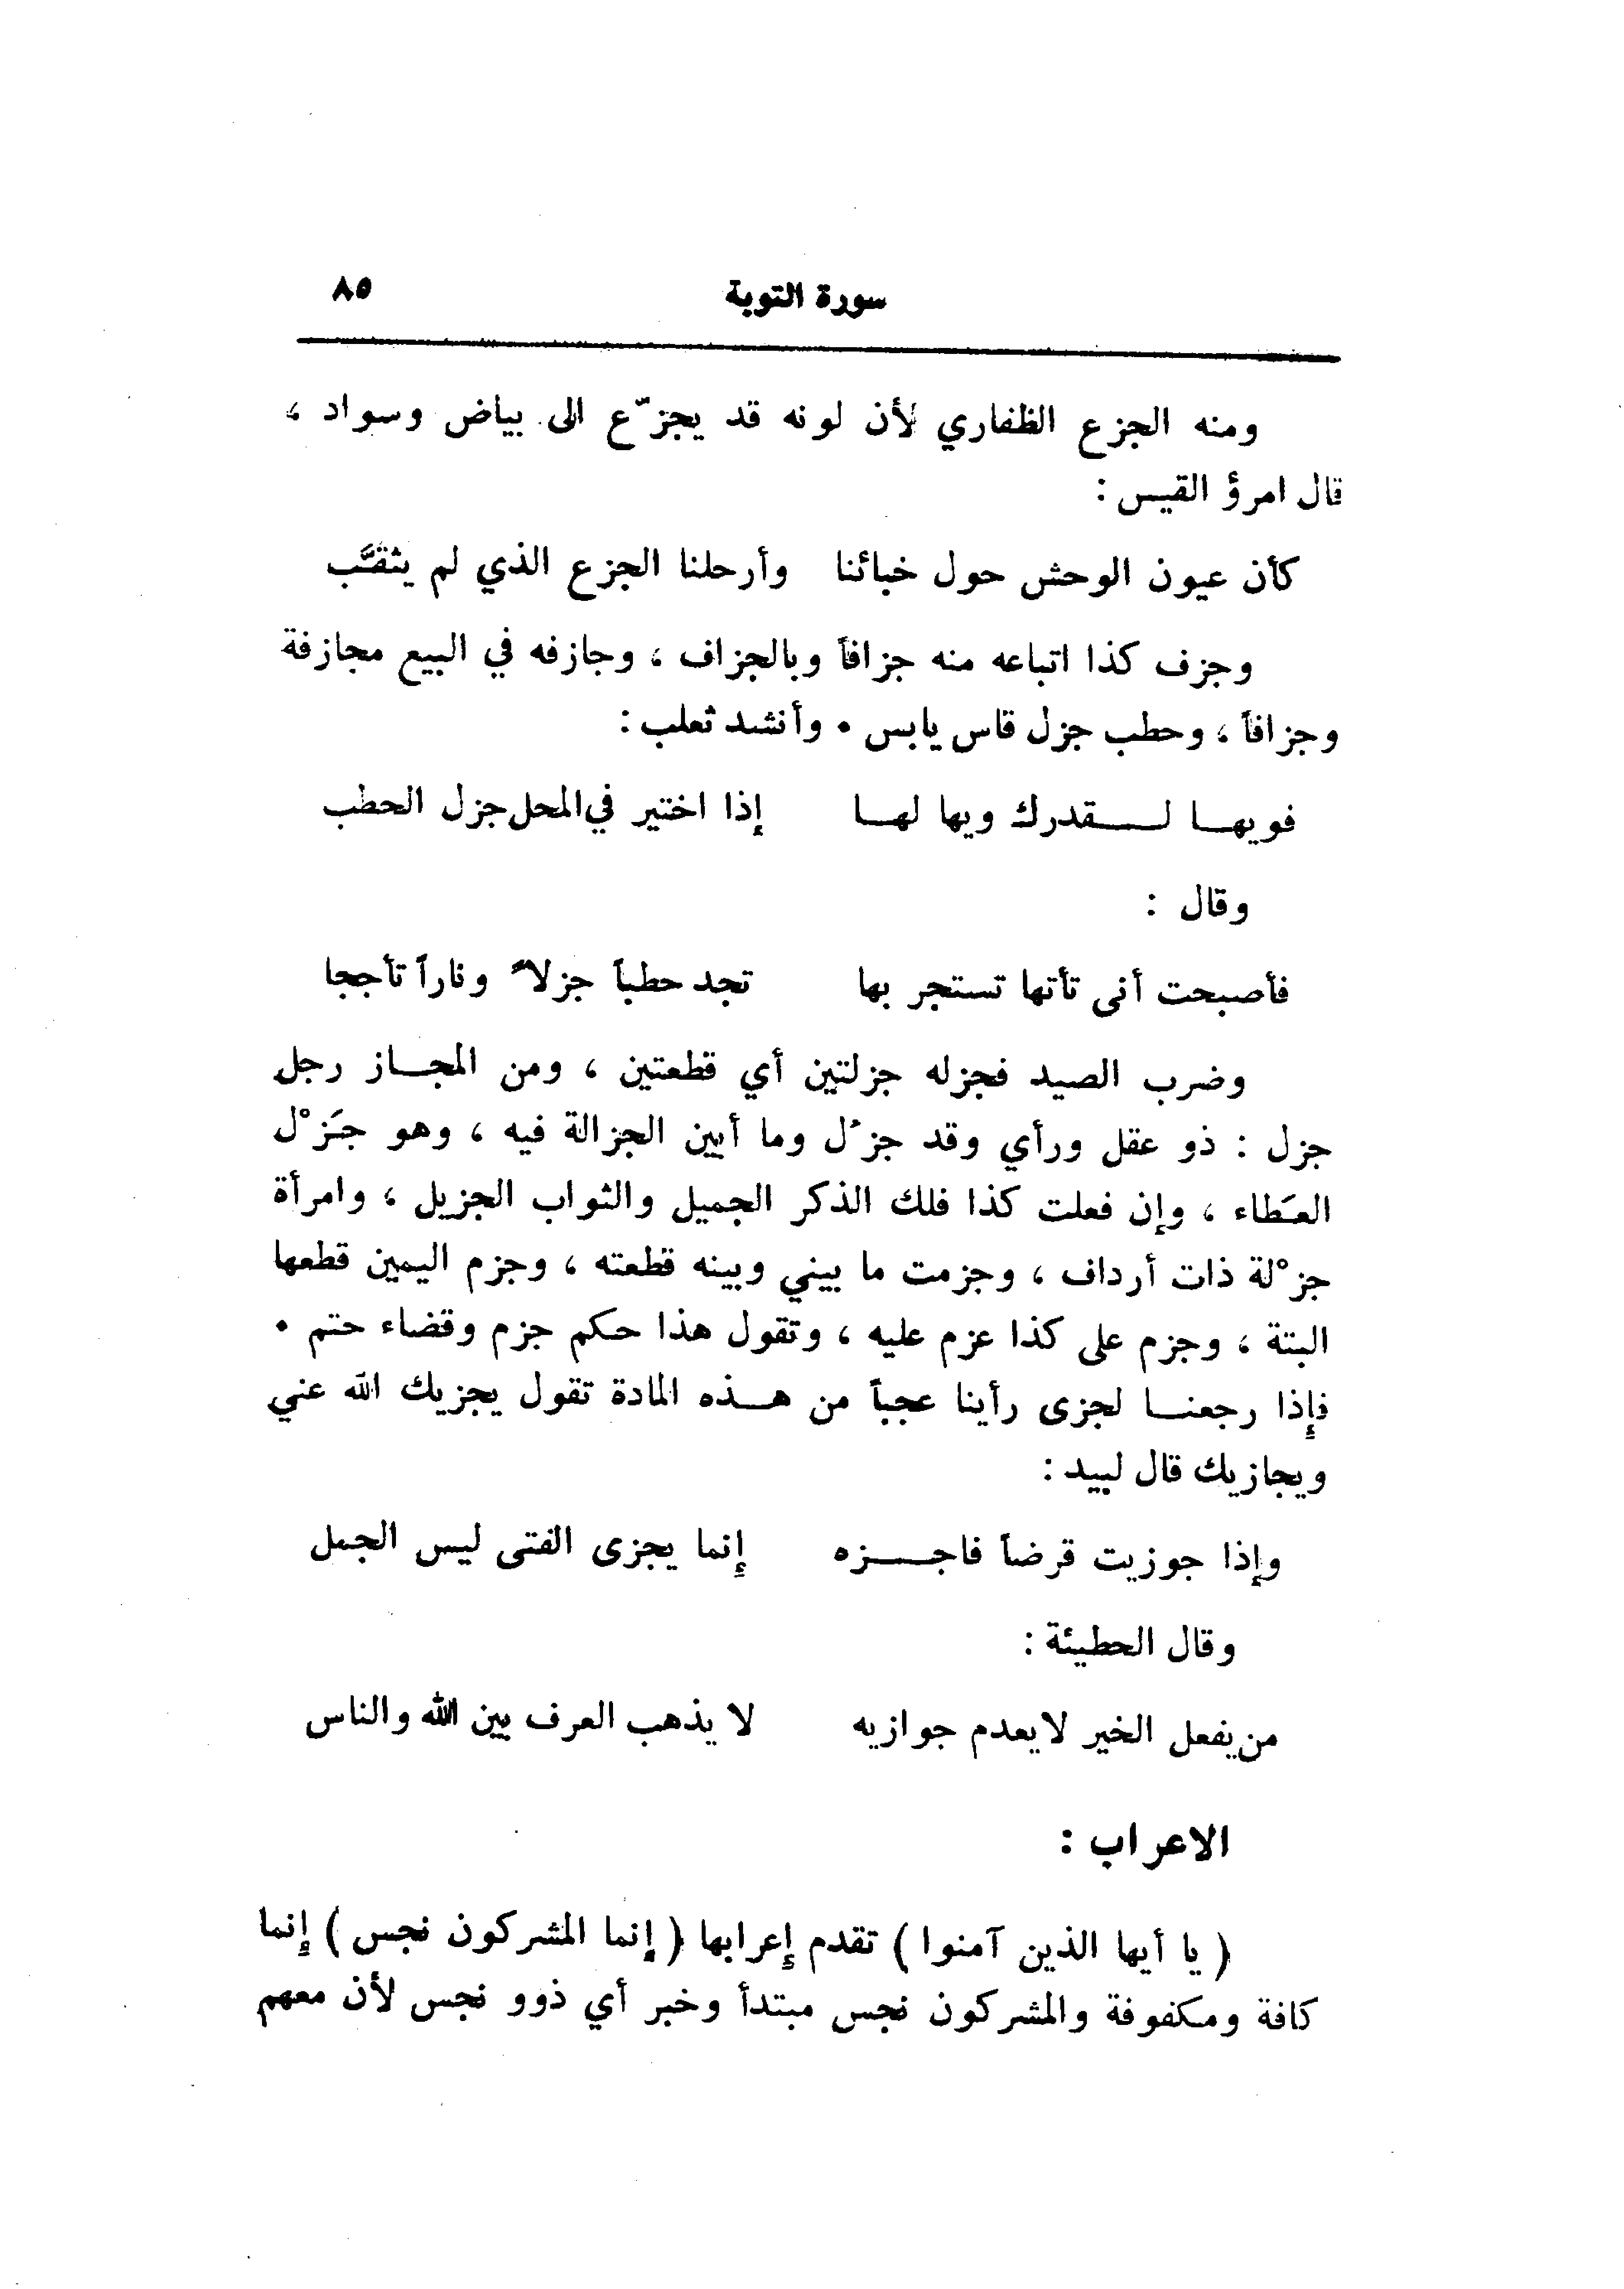 سورة التوبة ٨٥
ومنه الجزع الظفاري لأن لونه قد يجزّع الى بياض وسواد ،
قال امرؤ القيس :
كأن عيون الوحش حول خبائنا وأرحلنا الجزع الذي لم يثقَّب
وجزف كذا اتباعه منه جزافاً وبالجزاف ، وجازفه في البيع مجازفة
وجزافاً ، وحطب جزل قاس يابس . وأنشد ثعلب :
فويهــا لـــقدرك ويها لهــا إذا اختير في المحل جزل الحطب
وقال :
فأصبحت أنى تأتها تستجر بها تجد حطباً جزلاً وناراً تأججا
وضرب الصيد فجزله جزلتين أي قطعتين ، ومن المجــاز رجل
جزل : ذو عقل ورأي وقد جزُل وما أبين الجزالة فيه ، وهو جَزْل
العَطاء ، وإن فعلت كذا فلك الذكر الجميل والثواب الجزيل ، وامرأة
جزْلة ذات أرداف ، وجزمت ما بيني وبينه قطعته ، وجزم اليمين قطعها
البتة ، وجزم على كذا عزم عليه ، وتقول هذا حكم جزم وقضاء حتم .
فإذا رجعنــا لجزى رأينا عجباً من هــذه المادة تقول يجزيك الله عني
ويجازيك قال لبيد :
وإذا جوزيت قرضاً فاجـــزه إنما يجزى الفتى ليس الجمل
وقال الحطيئة :
من يفعل الخير لا يعدم جوازيه لا يذهب العرف بين الله والناس
الاعراب :
( يا أيها الذين آمنوا ) تقدم إعرابها ( إنما المشركون نجس ) إنما
كافة ومكفوفة والمشركون نجس مبتدأ وخبر أي ذوو نجس لأن معهم